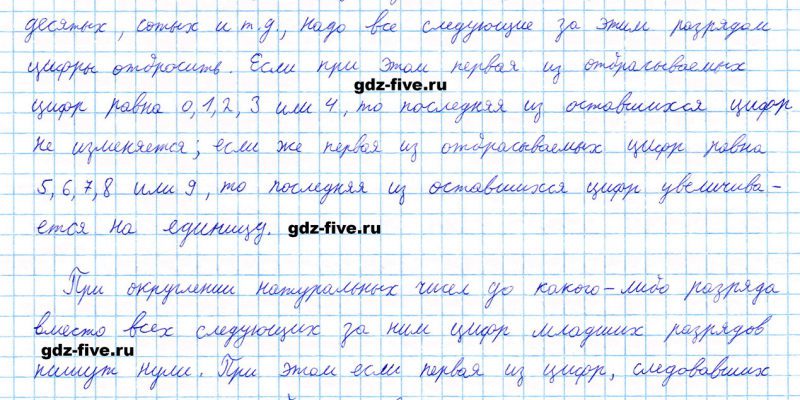 десятых, сотых и т.д., надо все следующие за этим разрядом
цифры отбросить. Если при этом первая из отбрасываемых
gdz-five.ru
цифр равна 0, 1, 2, 3 или 4, то последняя из оставшихся цифр
не изменяется; если же первая из отбрасываемых цифр равна
5, 6, 7, 8 или 9, то последняя из оставшихся цифр увеличива-
ется на единицу. gdz-five.ru
При округлении натуральных чисел до какого-либо разряда
вместо всех следующих за ним цифр младших разрядов
gdz-five.ru
пишут нули. При этом если первая из цифр, следовавших